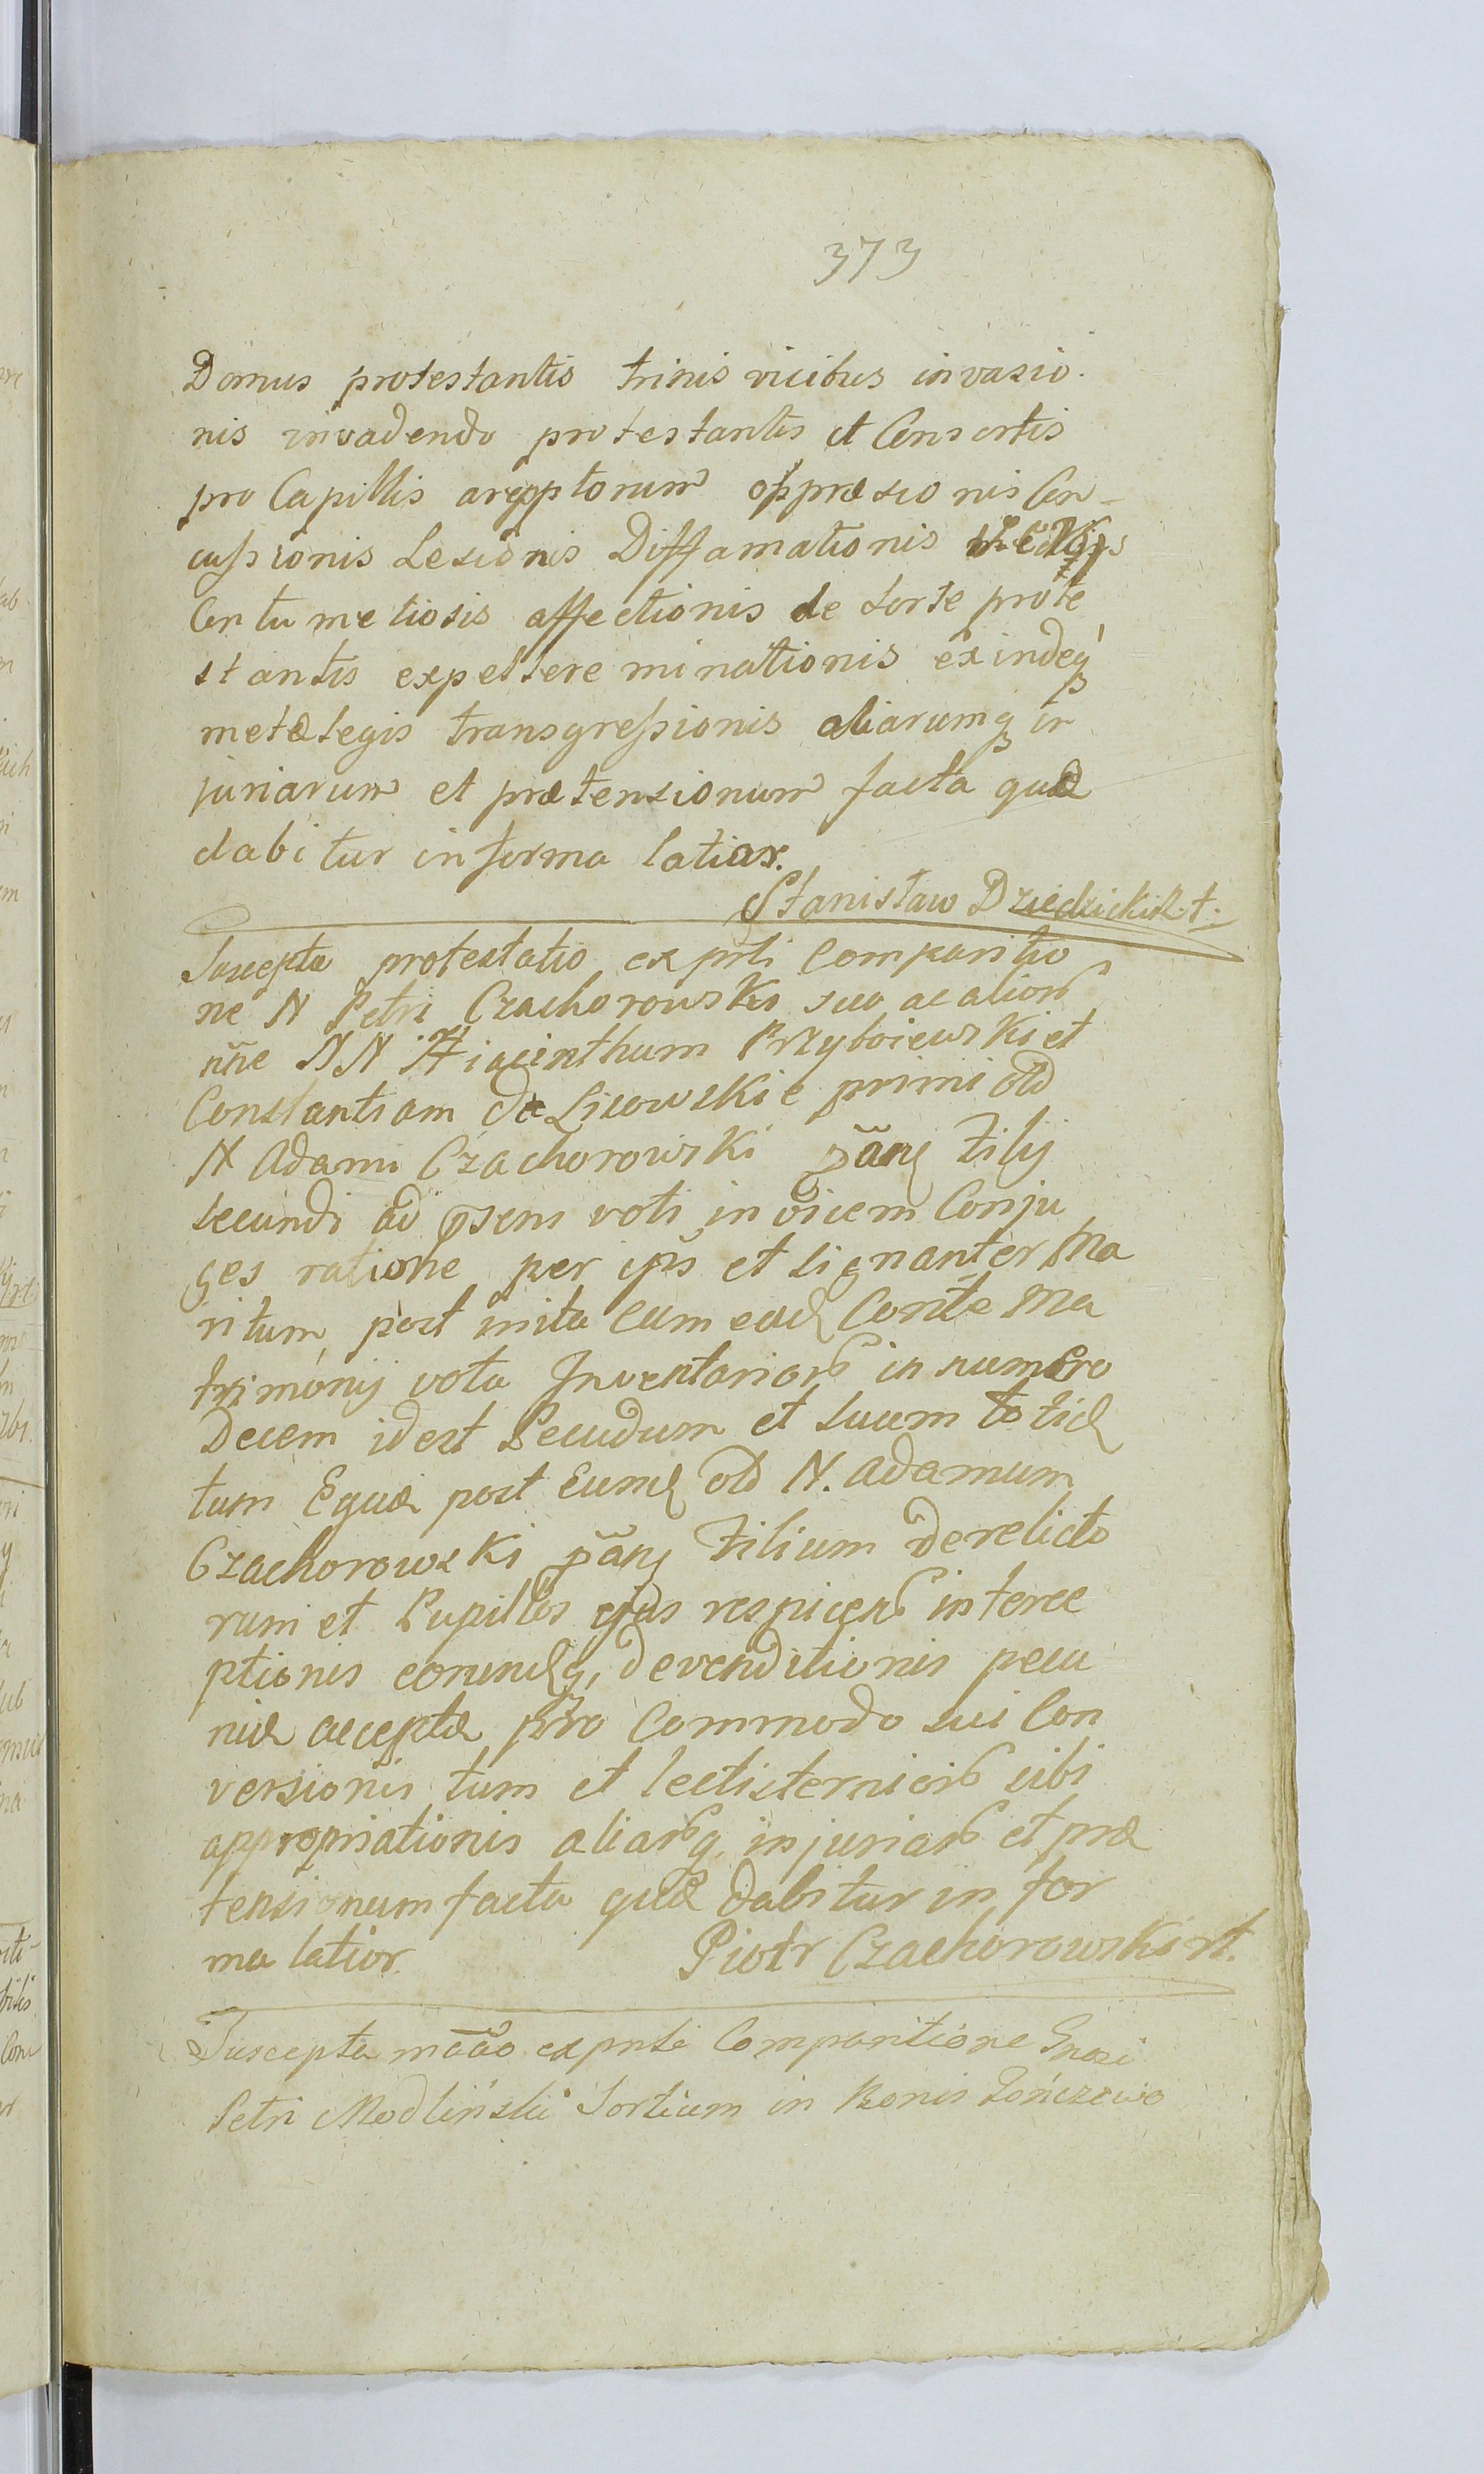 373
Domus protestantis trinis vicibus invasio-
nis invadendo protestantis et Consortis
pro Capillis areptorum oppræsionis Con-
cussionis Lesionis Diffamationis
Contumeliosis affectionis de sorte prote
stantis expellere minationis exindeq
metælegis transgressionis aliarumq in
juriarum et prætensionum facta quæ
dabitur in forma latior.
Stanisław Dziedzicki R.t:
Suscepta protestatio ex prti Comparitio
ne N Petri Czachorowski suo ac alior
nñe NN Hiacinthum Przyboiewski et
Constantiam de Lisowskie primi old
N Adami Czachorowski pãng Filij
secundi ad psens voti invicem Conju
ges ratione per ips et signanter Ma
ritum, post inita cum ead Conste Ma
trimonij vota Inventarior in numero
Decem idest Pecudum et suum totid
tum Equæ post Eumd old N. Adamum
Czachorowski pãng Filium derelicto
rum et Pupillos ejus respicen interce
ptionis eorumdq, devenditionis pecu
niæ acceptæ pro Commodo sui Con
versionis tum et lectisternior sibi
appropriationis aliarq, injuriar et præ
tensionum facta quæ dabitur in for
ma latior. Piotr Czachorowski rt.
Suscepta mãão ex pnte Comparitione Gnosi
Petri Modliński Sortium in Bonis Łończewo